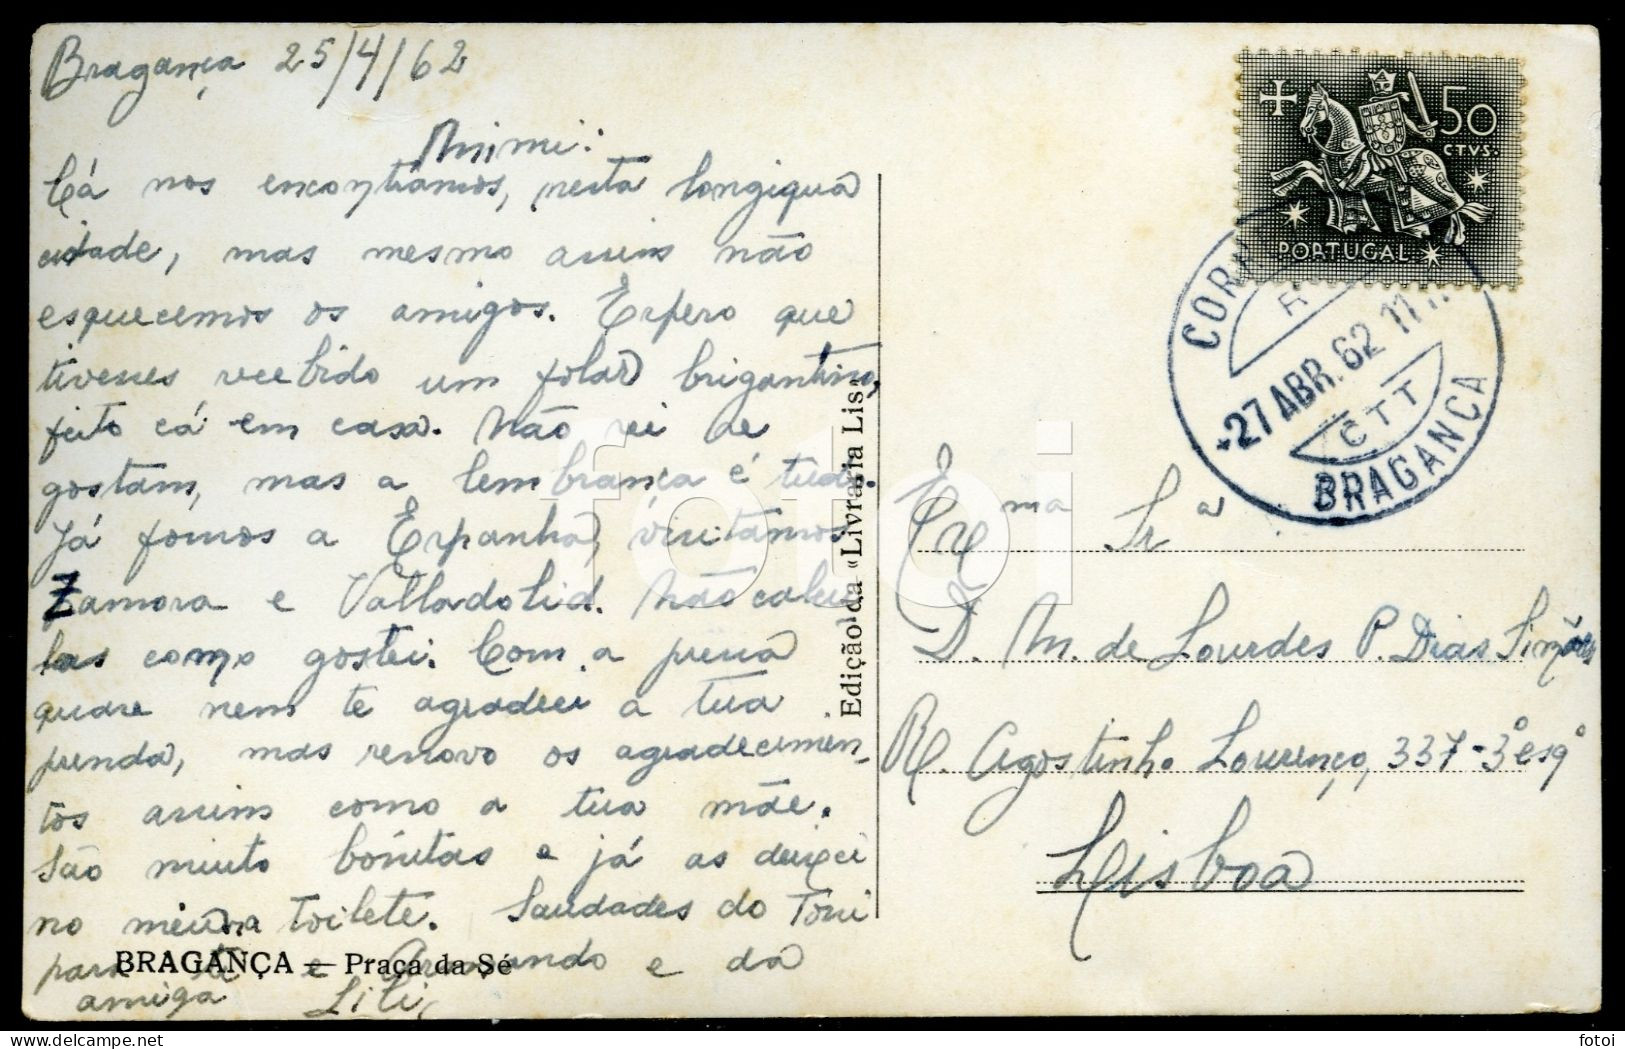 Bragança 25/4/62
Mimi:
Cá nos encontrâmos, nesta longiqua
cidade, mas mesmo assim não
esquecemos os amigos. Espero que
tivesses recebido um folar brigantino,
feito cá em casa. Não sei se
gostam, mas a lembrança é tudo.
Já fomos a Espanha, visitâmos
Zamora e Valladolid. Não calcu
las como gostei. Com a pressa
quase nem te agradeci a tua
prenda, mas renovo os agradecimen-
tos assim como a tua mãe.
São muito bonitas e já as deixei
no minha toilete. Saudades do Toni
para ti e Armando e da
amiga Lili,
BRAGANÇA — Praça da Sé
Edição da «Livraria Lis»
50
CTVS.
PORTUGAL
27 ABR. 62 11
CTT
BRAGANÇA
Exma Sra
D. M. de Lourdes P. Dias Simões
R. Agostinho Lourenço, 337-3º esqº
Lisboa
fotoi
delcampe.net
fotoi